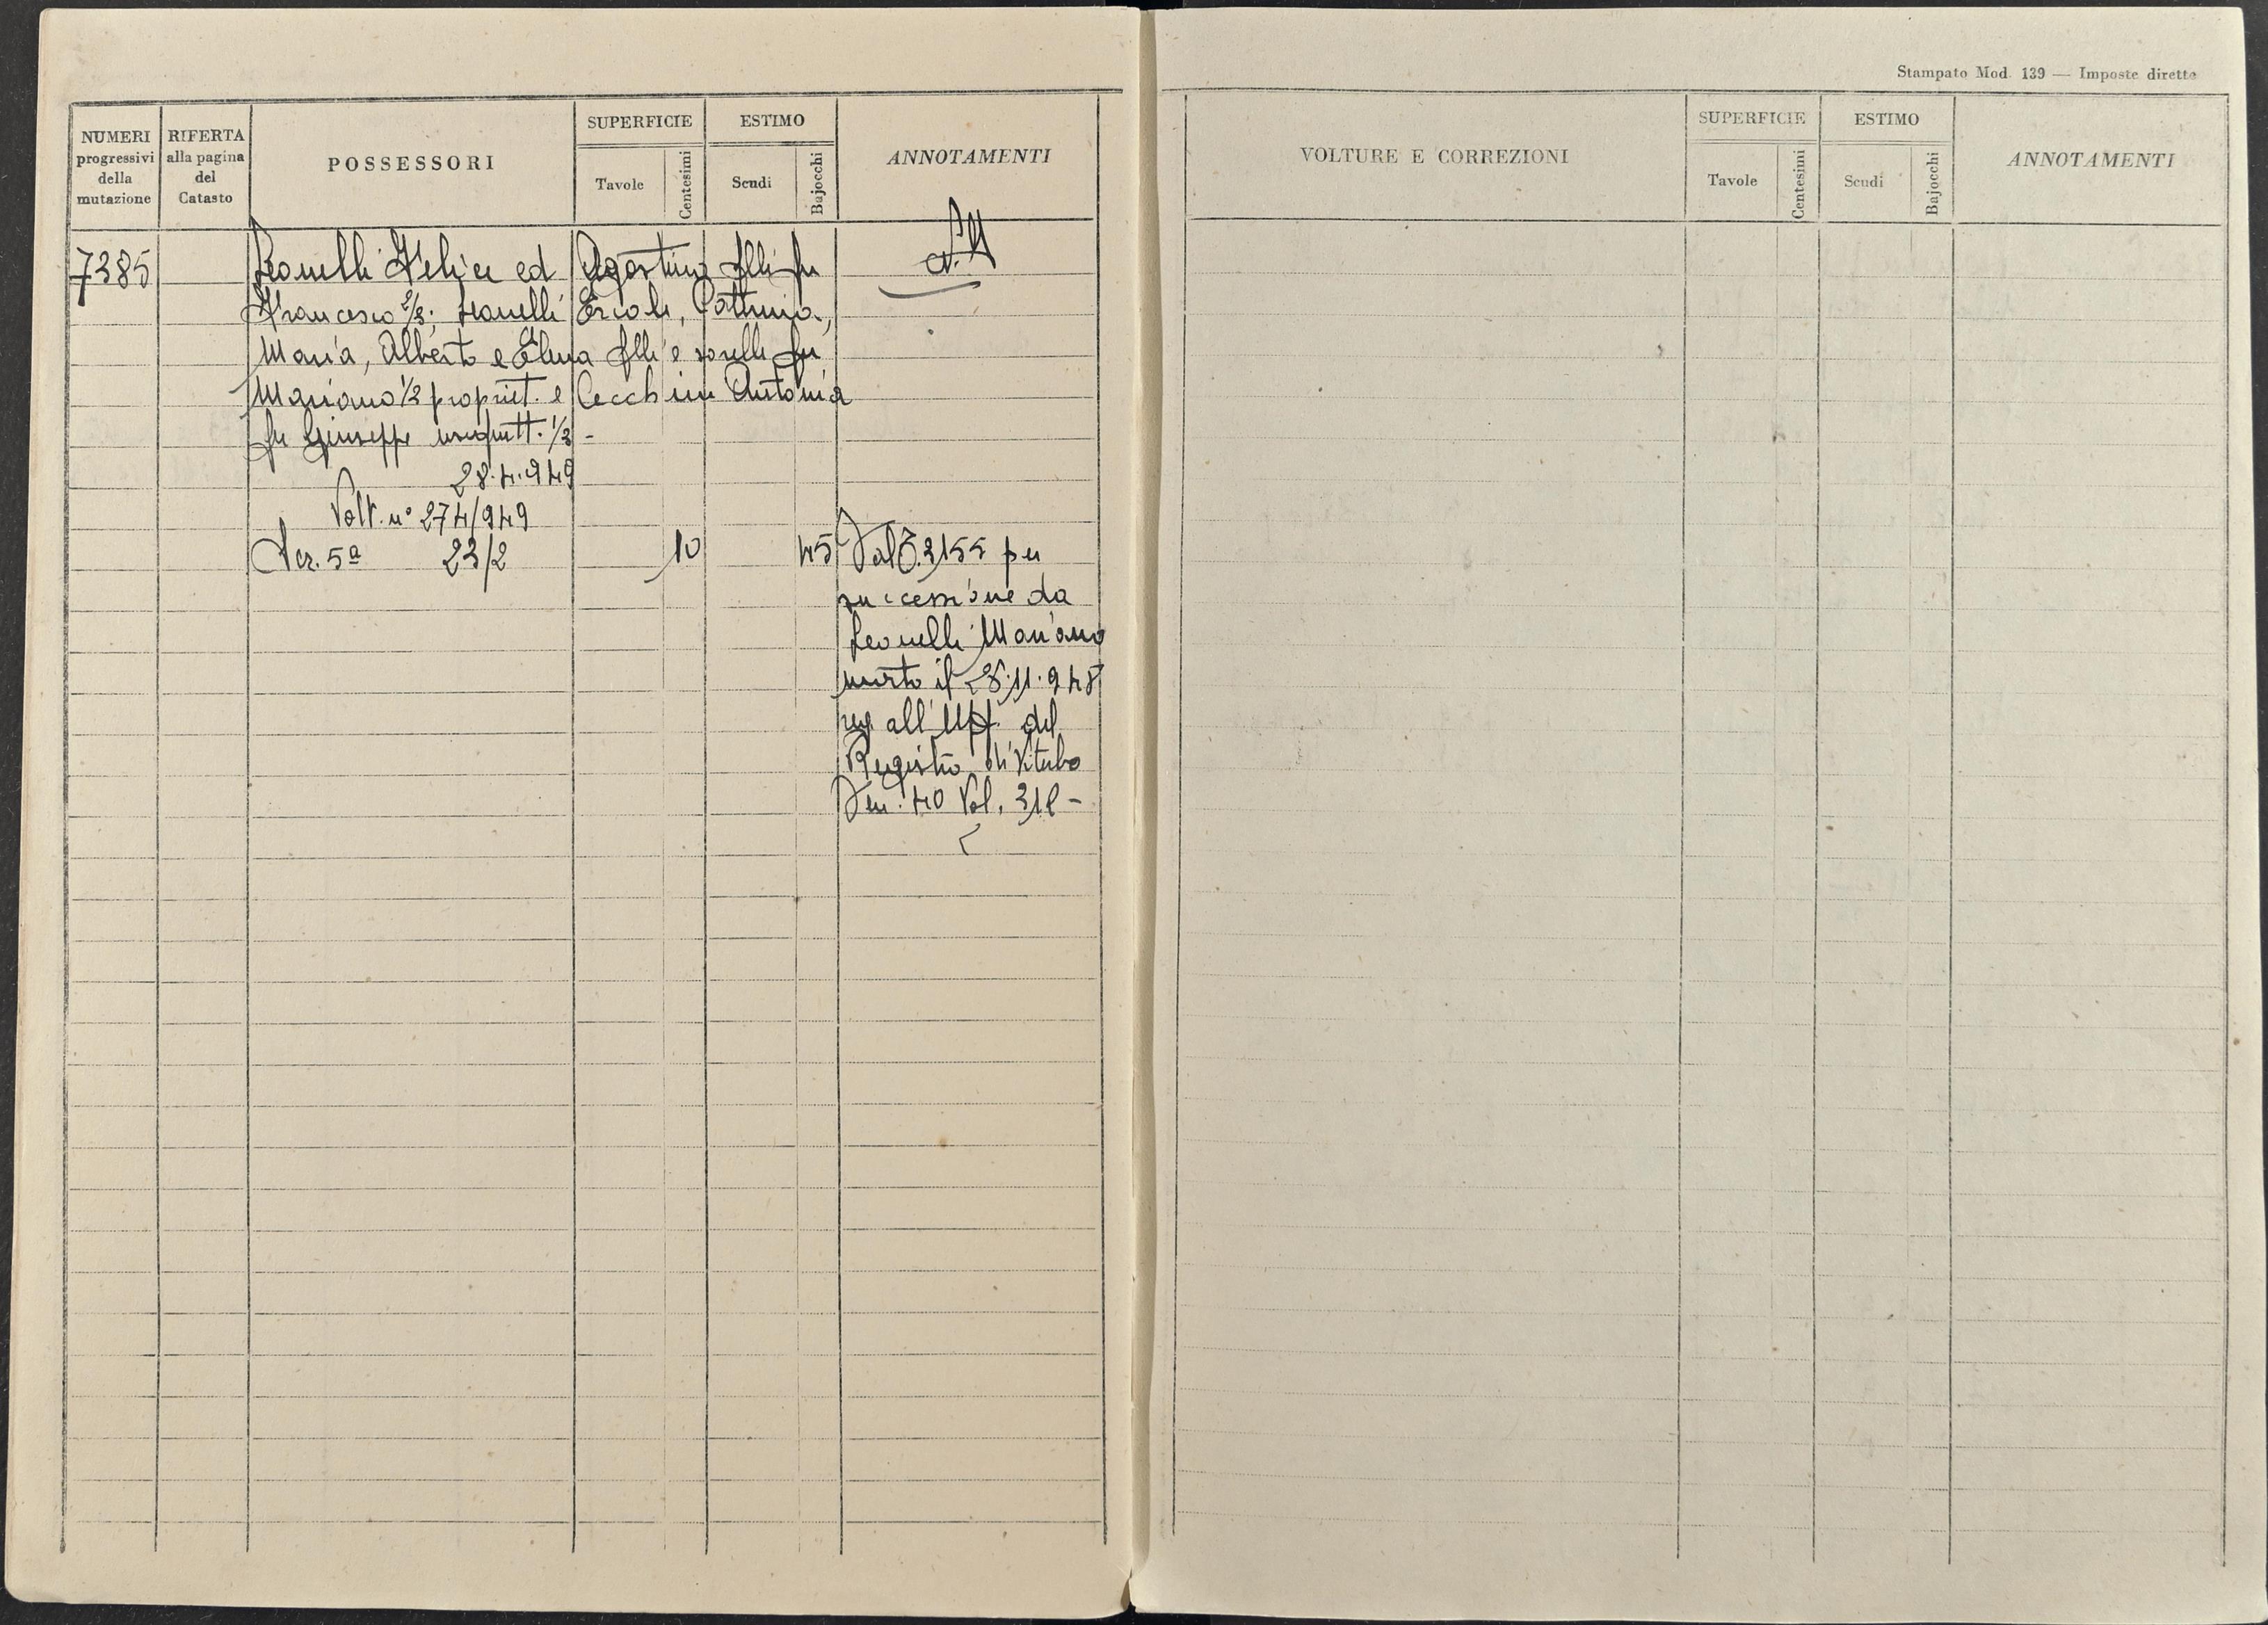 NUMERI progressivi della mutazione
RIFERTA alla pagina del Catasto
POSSESSORI
SUPERFICIE
Tavole
Centesimi
ESTIMO
Scudi
Bajocchi
ANNOTAMENTI
7385
Leonelli Felice ed Agostino flli fu
Francesco 2/3; Leonelli Ercole, Catterina,
Maria, Alberto e Elena flli e sorelle fu
Mariano 1/3 propriet. e Cecchini Antonia
fu Giuseppe usufrutt. 1/3 -
28.4.949
Volt. n° 274/949
Ser. 5ª 23/2 10 45
Dal 3155 per
successione da
Leonelli Mariano
morto il 11.948
reg all'Uff. del
Registro di Viterbo
Den. 40 Vol. 318 -
Stampato Mod. 139 — Imposte dirette
VOLTURE E CORREZIONI
SUPERFICIE
Tavole
Centesimi
ESTIMO
Scudi
Bajocchi
ANNOTAMENTI